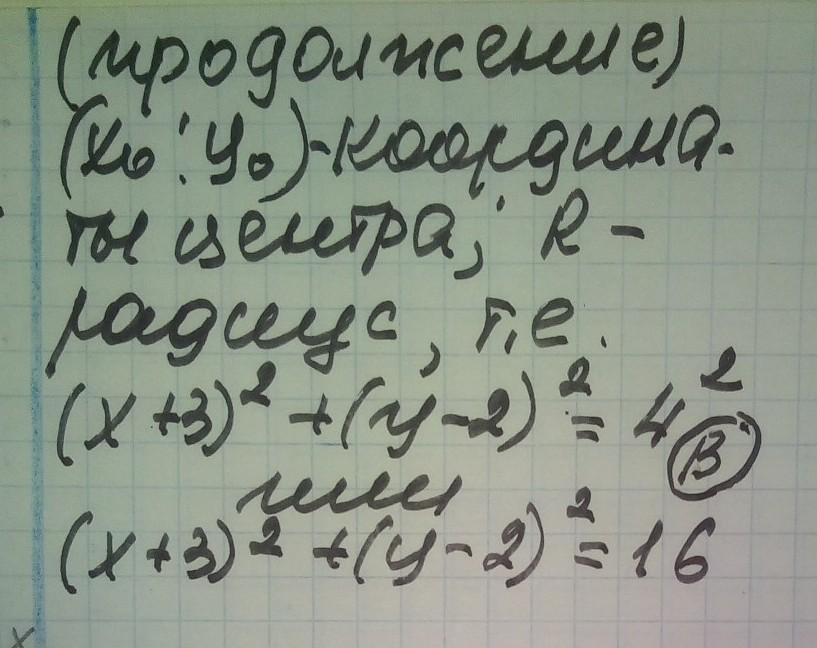 (продолжение)
(x₀; y₀)-координа-
ты центра; R -
радиус, т.е.
(x+3)² + (y-2)² = 4² В
или
(x+3)² + (y-2)² = 16